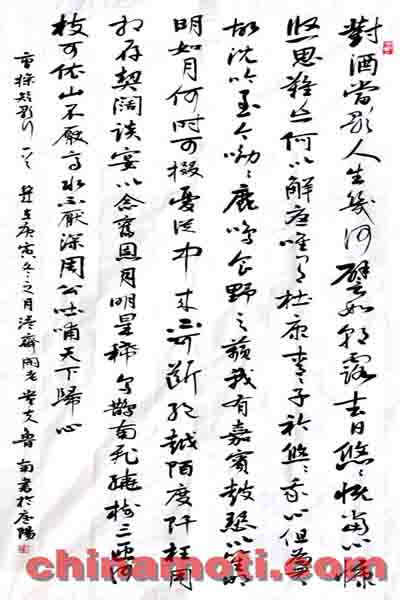 對酒當歌人生幾何譬如朝露去日慨當以慷
思難忘何以解憂唯有杜康青々子衿悠々我心但為君
故沈吟至今呦々鹿鳴食野之蘋我有嘉賓鼓瑟吹笙
明如月何時可掇憂從中來不可斷絕越陌度阡枉用
相存契闊談宴心念舊恩月明星稀烏鵲南飛繞樹三匝何
枝可依山不厭高水不厭深周公吐哺天下歸心
曹操短歌行一首 庚寅冬之月 魯南書於陽
chinamoti.com